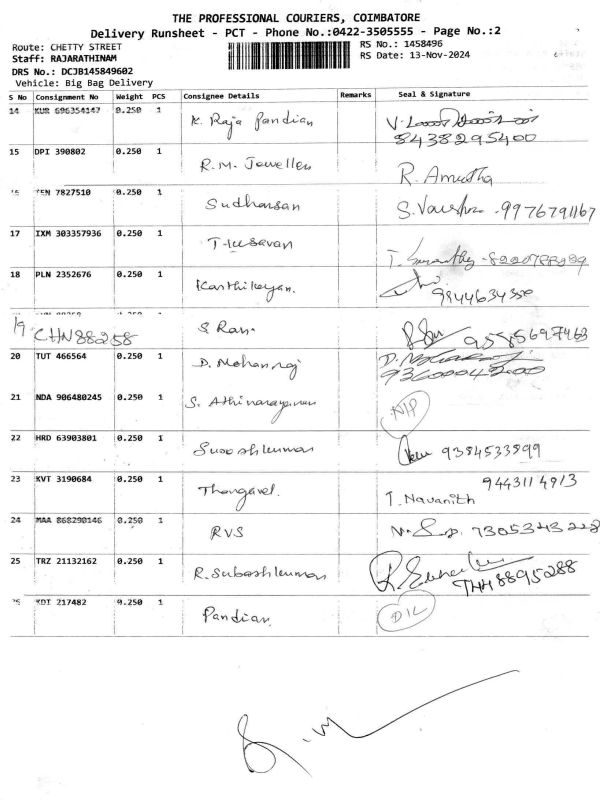 THE PROFESSIONAL COURIERS, COIMBATORE
Delivery Runsheet - PCT - Phone No.:0422-3505555 - Page No.:2
Route: CHETTY STREET RS No.: 1458496
Staff: RAJARATHINAM RS Date: 13-Nov-2024
DRS No.: DCJB145849602
Vehicle: Big Bag Delivery
S No Consignment No Weight PCS Consignee Details Remarks Seal & Signature
14 KUR 696354147 0.250 1 K. Raja Pandian
8438295400
15 DPI 390802 0.250 1 R.M. Jewellers R. Amutha
16 TEN 7827510 0.250 1 Sudharsan 9976791167
17 IXM 303357936 0.250 1 8220788989
18 PLN 2352676 0.250 1 Karthikeyan. 9944634350
19 CHN 88258 S. Ram 9585697463
20 TUT 466564 0.250 1 D. Mohanraj D. Mohanraj
9360004300
21 NDA 906480245 0.250 1 S. Athinarayanan NIP
22 HRD 63903801 0.250 1 Sureshkumar 9384533899
23 KVT 3190684 0.250 1 Thangavel. 9443114913
T. Navanith
24 MAA 868290146 0.250 1 RVS 7305343228
25 TRZ 21132162 0.250 1 R. Subashkumar 8895288
26 KDI 217482 0.250 1 Pandian DIL